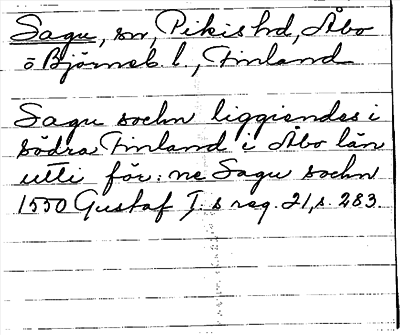 Sagu, sn, Pikis hd, Åbo
o Björneb. l., Finland
Sagu sochn liggiendes i
södra Finland i Åbo län
utti för: ne Sagu sochn
1550 Gustaf I. s reg. 21, s. 283.